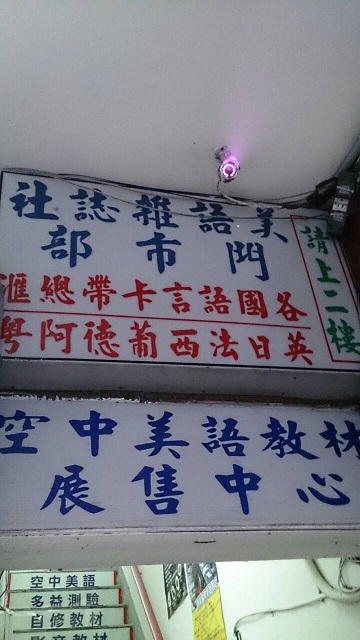 美語雜誌社
門市部
各國語言卡帶總匯
英日法西葡德阿粵
請上二樓
空中美語教材
展售中心
空中美語
多益測驗
自修教材
影音教材